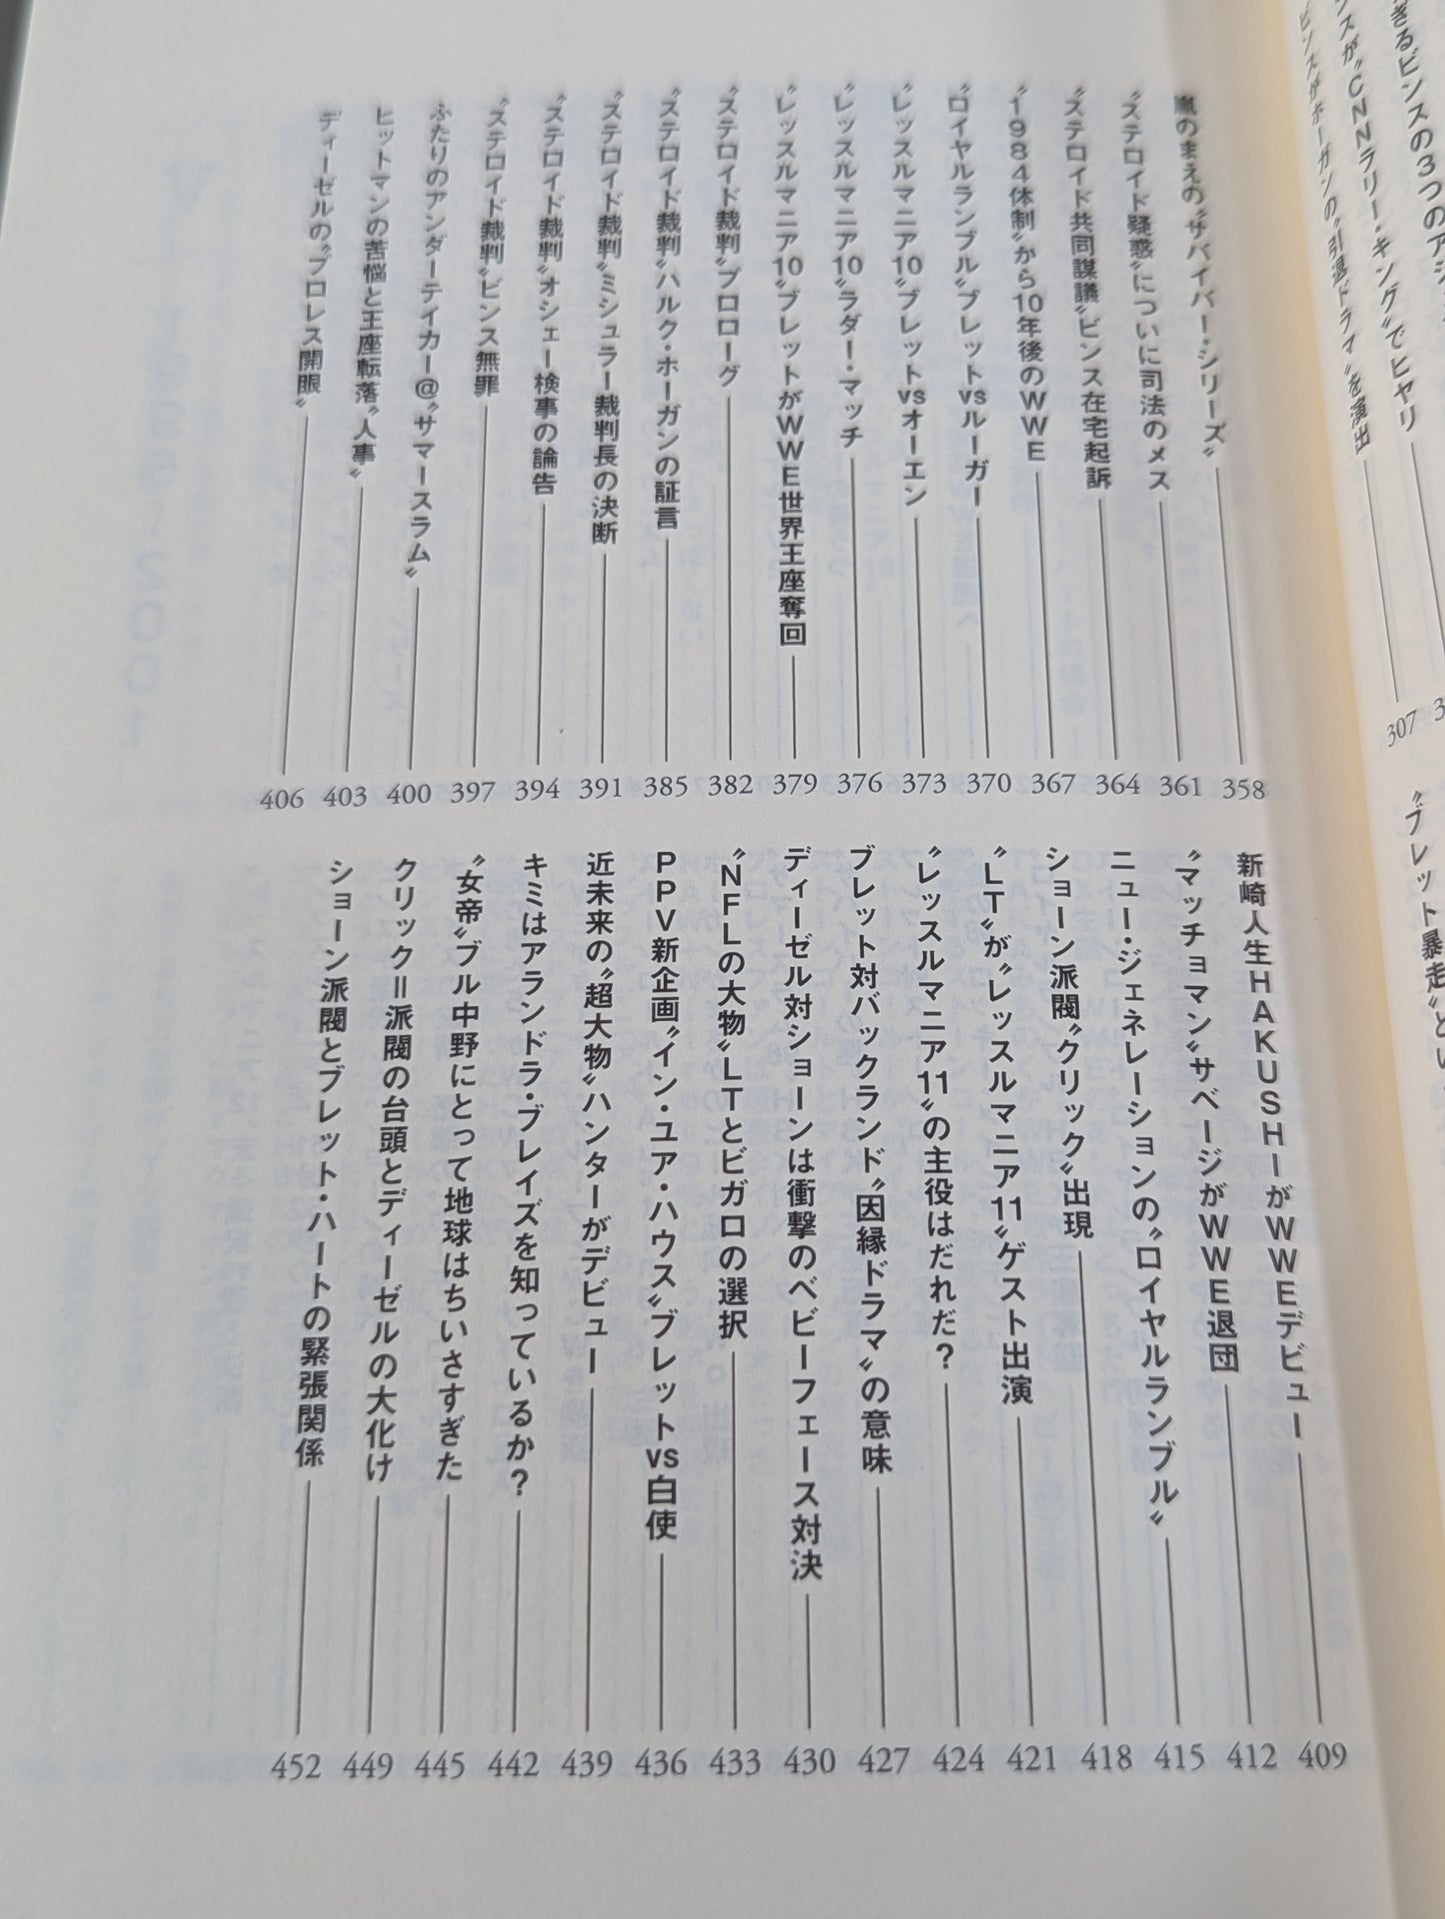 ぎるビンスの3つのア
ンスが〝CNNラリー・キング〟でヒヤリ
ビンスがホーガンの〝引退ドラマ〟を演出 307
〝ブレット暴走〟とい
嵐のまえの〝サバイバー・シリーズ〟 358
〝ステロイド疑惑〟についに司法のメス 361
〝ステロイド共同謀議〟ビンス在宅起訴 364
〝1984体制〟から10年後のWWE 367
〝ロイヤルランブル〟ブレットvsルーガー 370
〝レッスルマニア10〟ブレットvsオーエン 373
〝レッスルマニア10〟ラダー・マッチ 376
〝レッスルマニア10〟ブレットがWWE世界王座奪回 379
〝ステロイド裁判〟プロローグ 382
〝ステロイド裁判〟ハルク・ホーガンの証言 385
〝ステロイド裁判〟ミシュラー裁判長の決断 391
〝ステロイド裁判〟オシェー検事の論告 394
〝ステロイド裁判〟ビンス無罪 397
ふたりのアンダーテイカー@〝サマースラム〟 400
ヒットマンの苦悩と王座転落〝人事〟 403
ディーゼルの〝プロレス開眼〟 406
新崎人生HAKUSHIがWWEデビュー 409
〝マッチョマン〟サベージがWWE退団 412
ニュー・ジェネレーションの〝ロイヤルランブル〟 415
ショーン派閥〝クリック〟出現 418
〝LT〟が〝レッスルマニア11〟ゲスト出演 421
〝レッスルマニア11〟の主役はだれだ？ 424
ブレット対バックランド〝因縁ドラマ〟の意味 427
ディーゼル対ショーンは衝撃のベビーフェース対決 430
〝NFLの大物〟LTとビガロの選択 433
PPV新企画〝イン・ユア・ハウス〟ブレットvs白使 436
近未来の〝超大物〟ハンターがデビュー 439
キミはアランドラ・ブレイズを知っているか？ 442
〝女帝〟ブル中野にとって地球はちいさすぎた 445
クリック＝派閥の台頭とディーゼルの大化け 449
ショーン派閥とブレット・ハートの緊張関係 452